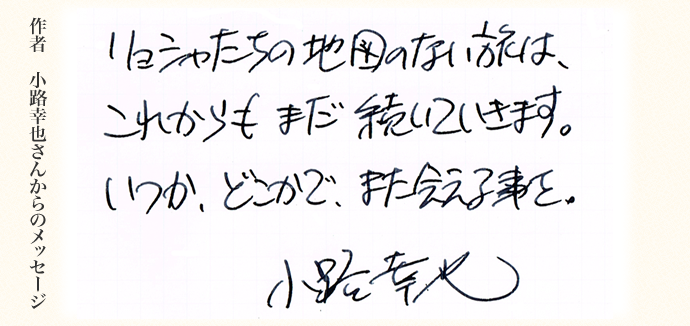 作者　小路幸也さんからのメッセージ
リョシャたちの地図のない旅は、
これからもまだ続いていきます。
いつか、どこかで、また会える事を。
小路幸也